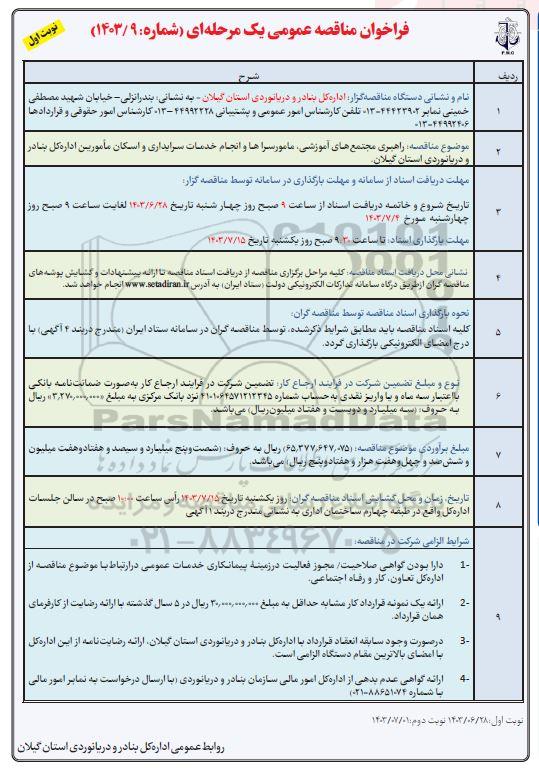 نوبت اول
فراخوان مناقصه عمومی یک مرحله‌ای (شماره: ۹ /۱۴۰۳)
P.M.O
ردیف
شرح
۱
نام و نشانی دستگاه مناقصه‌گزار: اداره‌کل بنادر و دریانوردی استان گیلان - به نشانی: بندرانزلی– خیابان شهید مصطفی
خمینی نمابر ۴۴۴۲۳۹۰۲-۰۱۳ تلفن کارشناس امور عمومی و پشتیبانی ۴۴۹۹۲۲۲۸ –۰۱۳ کارشناس امور حقوقی و قراردادها
۴۴۹۹۲۴۰۶-۰۱۳
۲
موضوع مناقصه: راهبری مجتمع‌های آموزشی، مامورسرا ها و انجام خدمات سرایداری و اسکان مأمورین اداره‌کل بنادر
و دریانوردی استان گیلان.
۳
مهلت دریافت اسناد از سامانه و مهلت بارگذاری در سامانه توسط مناقصه گزار:
تاریخ شروع و خاتمه دریافت اسناد از ساعت ۹ صبح روز چهار شنبه تاریخ ۱۴۰۳/۶/۲۸ لغایت ساعت ۹ صبح روز
چهارشنبه مورخ ۱۴۰۳/۷/۴
مهلت بارگذاری اسناد: تا ساعت ۹:۳۰ صبح روز یکشنبه تاریخ ۱۴۰۳/۷/۱۵
۴
نشانی محل دریافت اسناد مناقصه: کلیه مراحل برگزاری مناقصه از دریافت اسناد مناقصه تا ارائه پیشنهادات و گشایش پوشه‌های
مناقصه گران ازطریق درگاه سامانه تدارکات الکترونیکی دولت (ستاد ایران) به آدرس www.setadiran.ir انجام خواهد شد.
۵
نحوه بارگذاری اسناد مناقصه توسط مناقصه گران:
کلیه اسناد مناقصه باید مطابق شرایط ذکرشده، توسط مناقصه گران در سامانه ستاد ایران (مندرج دربند ۴ آگهی) با
درج امضای الکترونیکی بارگذاری گردد.
۶
نوع و مبلغ تضمین شرکت در فرایند ارجاع کار: تضمین شرکت در فرایند ارجاع کار به‌صورت ضمانت‌نامه بانکی
بااعتبار سه ماه و یا واریز نقدی به حساب شماره ۴۱۰۱۰۶۴۵۷۱۲۱۲۳۴۵ نزد بانک مرکزی به مبلغ «۳,۲۷۰,۰۰۰,۰۰۰» ریال
به حروف: (سه میلیارد و دویست و هفتاد میلیون‌ریال) می‌باشد.
۷
مبلغ برآوردی موضوع مناقصه: (۶۵,۳۷۷,۶۴۷,۰۷۵) ریال به حروف: (شصت‌وپنج میلیارد و سیصد و هفتادوهفت میلیون
و شش‌صد و چهل‌وهفت هزار و هفتادوپنج ریال) می‌باشد.
۸
تاریخ، زمان و محل گشایش اسناد مناقصه گران: روز یکشنبه تاریخ ۱۴۰۳/۷/۱۵ رأس ساعت ۱۰:۰۰ صبح در سالن جلسات
اداره‌کل واقع در طبقه چهارم ساختمان اداری به نشانی مندرج دربند ۱ آگهی
۹
شرایط الزامی شرکت در مناقصه:
1- دارا بودن گواهی صلاحیت/ مجوز فعالیت درزمینۀ پیمانکاری خدمات عمومی درارتباط‌با موضوع مناقصه از
اداره‌کل تعاون، کار و رفاه اجتماعی.
2- ارائه یک نمونه قرارداد کار مشابه حداقل به مبلغ ۳۰,۰۰۰,۰۰۰,۰۰۰ ریال در ۵ سال گذشته با ارائه رضایت از کارفرمای
همان قرارداد.
3- درصورت وجود سابقه انعقاد قرارداد با اداره‌کل بنادر و دریانوردی استان گیلان، ارائه رضایت‌نامه از این اداره‌کل
با امضای بالاترین مقام دستگاه الزامی است.
4- ارائه گواهی عدم بدهی از اداره‌کل امور مالی سازمان بنادر و دریانوردی (با ارسال درخواست به نمابر امور مالی
با شماره ۸۸۶۵۱۰۷۴-۰۲۱)
نوبت اول: ۱۴۰۳/۰۶/۲۸ نوبت دوم: ۱۴۰۳/۰۷/۰۱
روابط عمومی اداره‌کل بنادر و دریانوردی استان گیلان
ParsNamadData
۰۲۱-۸۸۳۴۹۶۷۰-۵